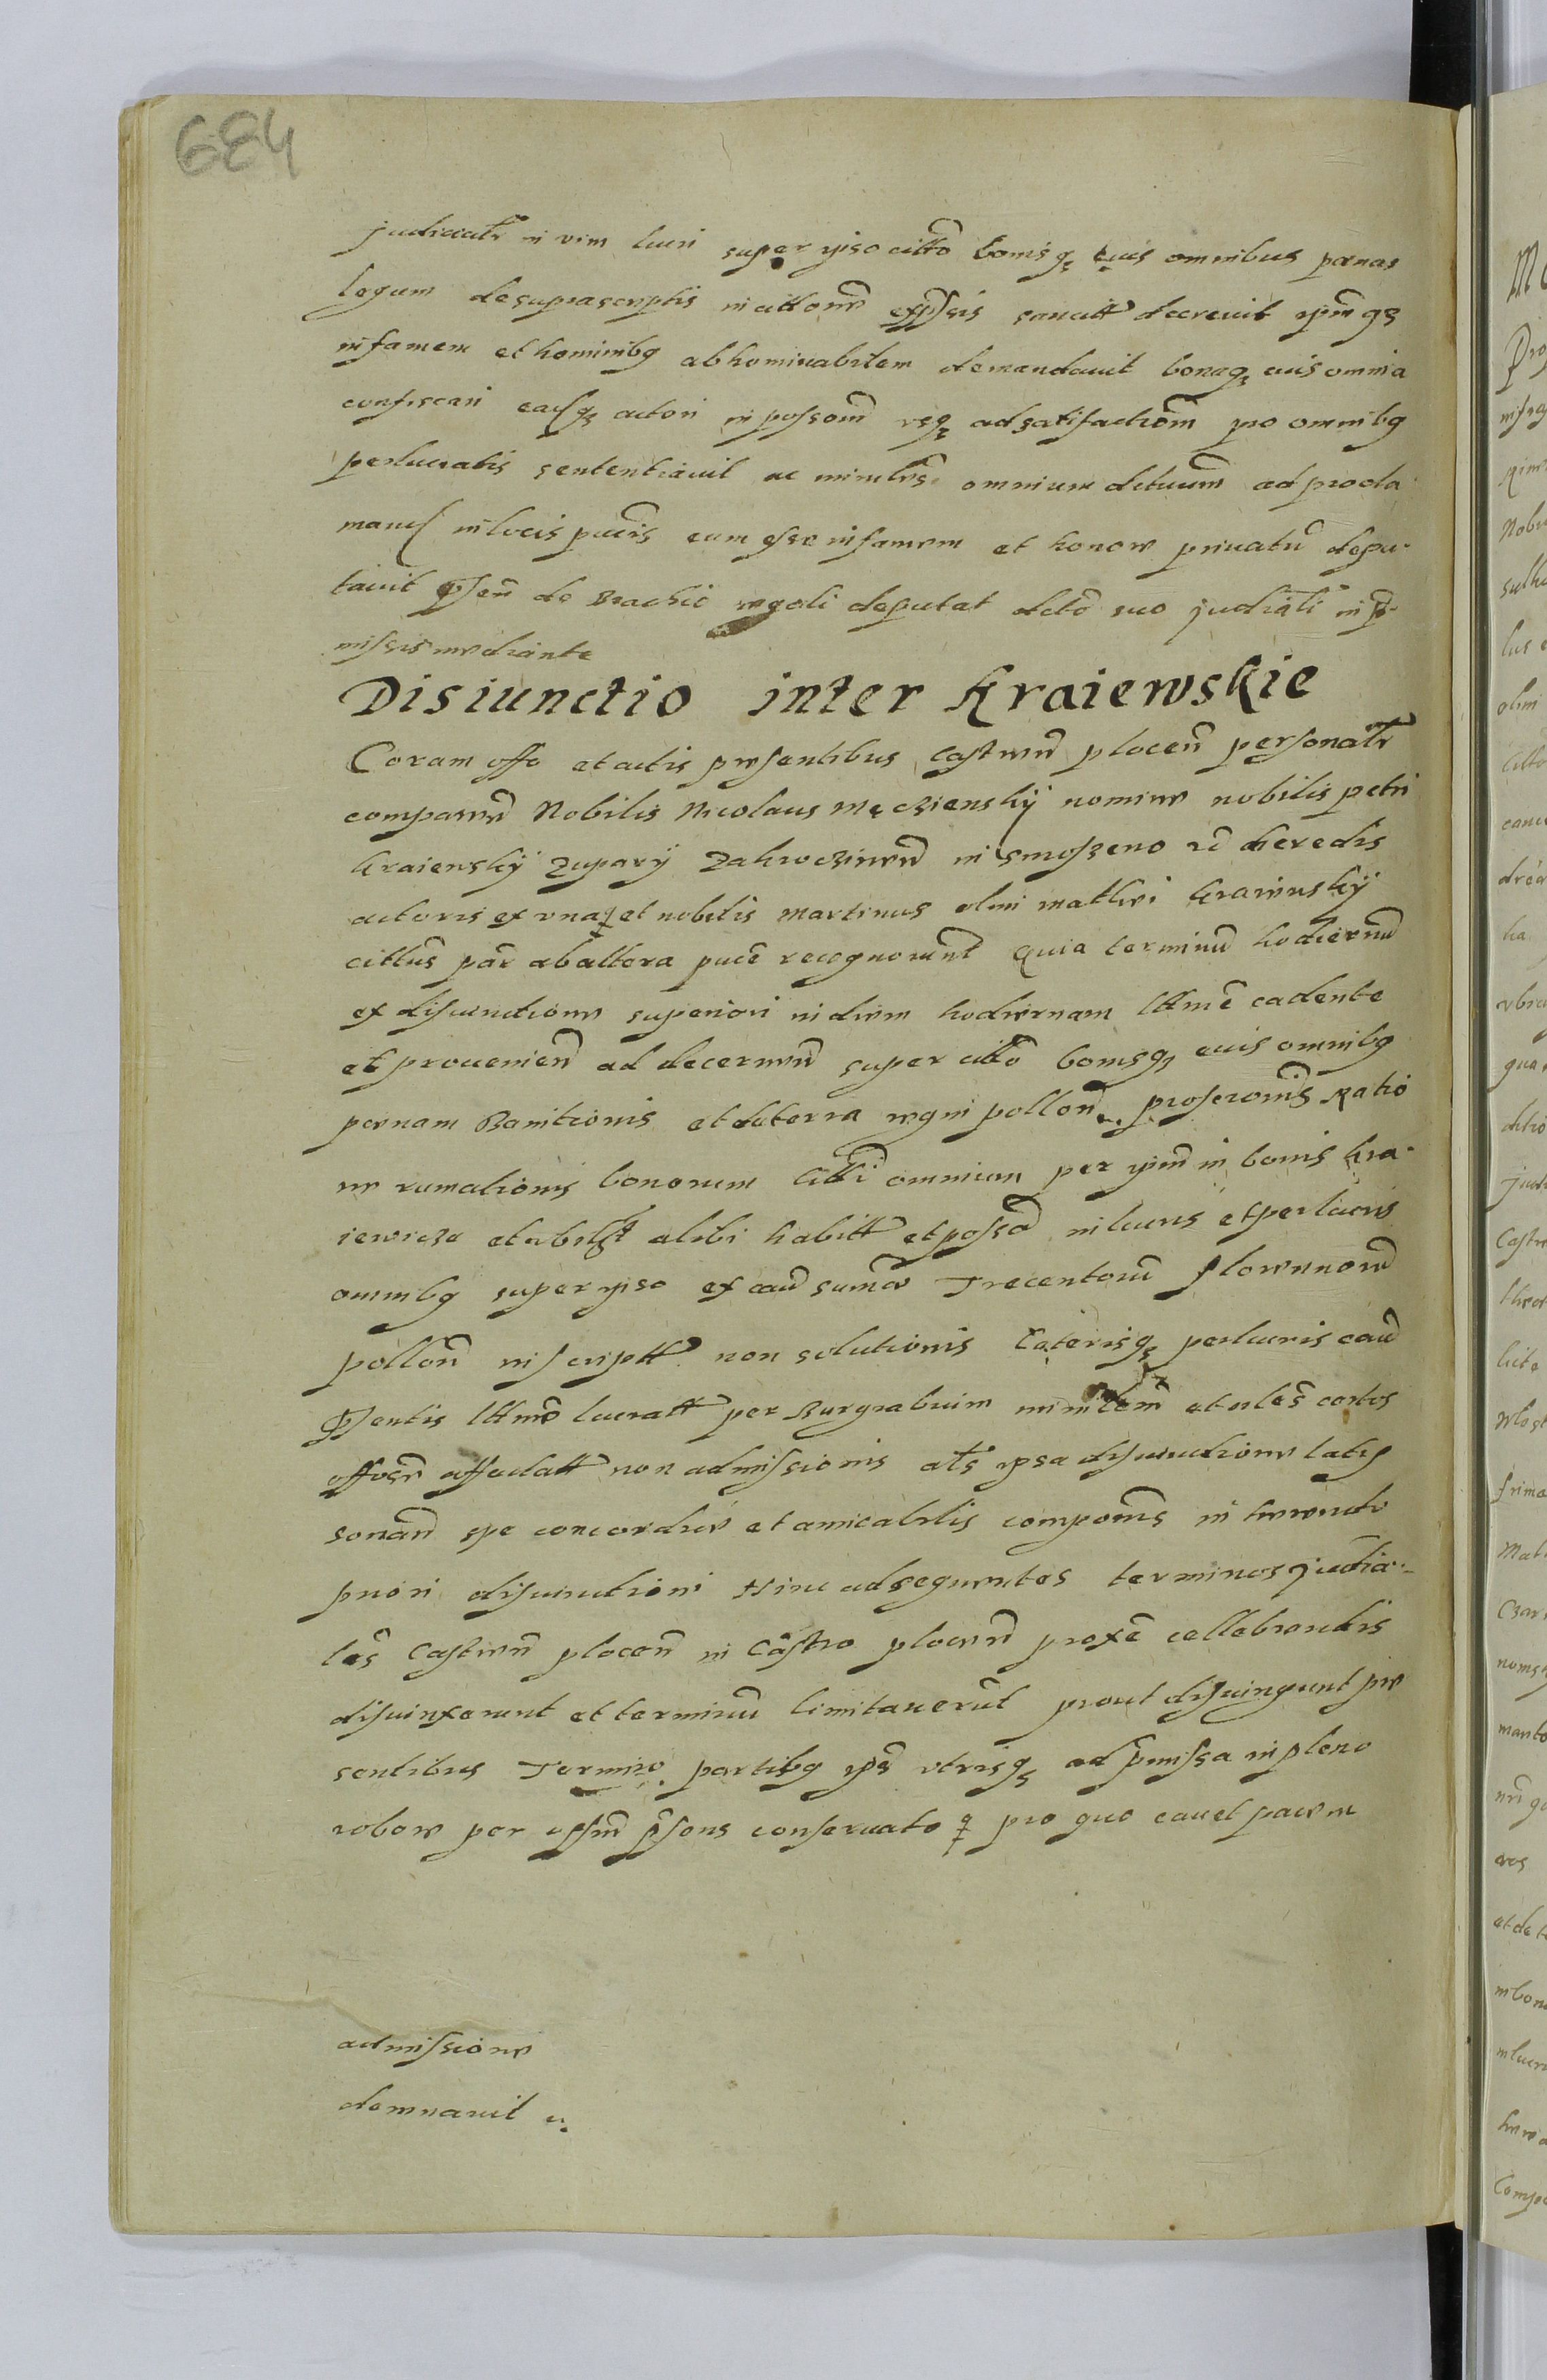 684
judicialr in vim lucri super ipso cittō bonisq₃ eius omnibus pœnas
legum desuprascriptis in citton̄e exp̄ssis sancitt decrevit ip̄mq₃
infamem et hominibq abhominabilem demandavit bonaq₃ eius omnia
confiscari eaq₃ actori in possom̄ usq₃ ad satisfactiōm̄ pro omnibq
perlucratis sententiavit ac mintrl̄s omnium dictuum̄ ad procla
mand in locis pub̄cis eum esse infamem et honore privatū depu-
tavit p̄seū de Brachio regali deputat dctō suo judiāli in p̄-
missis mediante
Disiunctio inter Kraiewskie
Coram offo et actis presentibus Castren̄ plocen̄ personalr̄
comparen̄ Nobilis Nicolaus Męczienskÿ nomine nobilis petri
Kraiewskÿ Zuparÿ Zakroczimen̄ in Smoszeno ac heredis
actoris ex vna et nobilis Martinus olim Mathei Kraiewskÿ
cittūs pār ab altera pub̄ce recognoverūnt Quia terminū hodiernū
ex disiunctione superiori in diem hodiernam lttim̄e cadente
et provenien̄ ad decernen̄ super cittō bonisq₃ eius omnibq
penam Banitionis et de terra regni pollon̄ proscrōnis Ratio
ne rumationis bonorum cittī omnium per ip̄m in bonis Kra-
iewicze et vbilibet alibi habitt et possā in lucris et perlucris
omnibq super ipso ex cau͞ sum̄æ Trecentorū florenorū
pollon̄ inscriptt non solutionis Cæterisq₃ perlucris cau͞
p̄sentis lttim̄e lucratt per Burgrabium minrlēm et nobles certos
offose affectatt non admissionis als̄ ipsa disiunctione latiq
sonan̄ spe concordiæ et amicabilis componis in herendo
priori disiunctioni Hinc ad sequentes terminos judicia-
lēs Castren̄ plocen̄ in Castro plocen̄ proxē cellebrandis
disiunxerunt et terminū limitaverūt prout disiungunt pre
sentibus Termino partibq ip̄s vtrisq₃ ad p̄missa in pleno
robore per offm̄ p̄sens conservato pro quo cavet pacem
admissione
demnavit